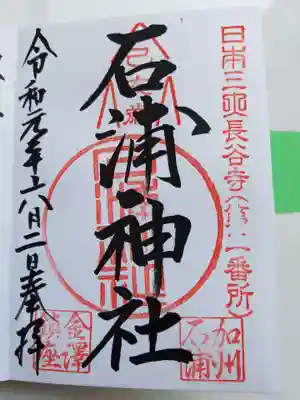 日本三所長谷寺(第一番所)
加州
石浦
石浦神社
金澤
鎮座
令和元年八月二日奉拝